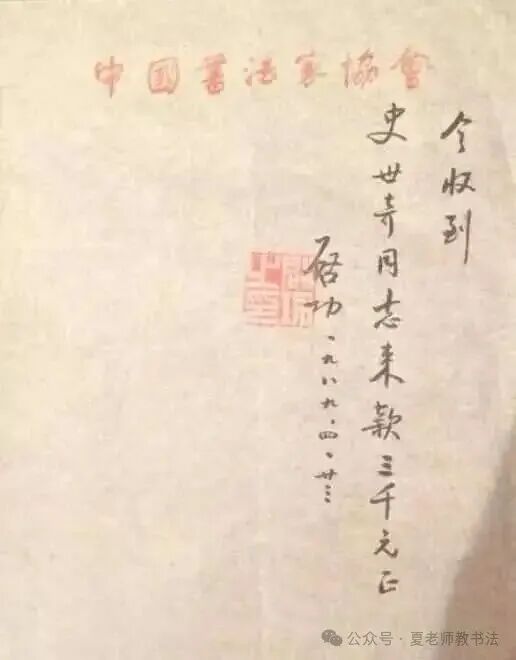 中国書法家協會
今收到
史世奇同志来款三千元正
启功、一九八九、四、廿三
公众号·夏老师教书法